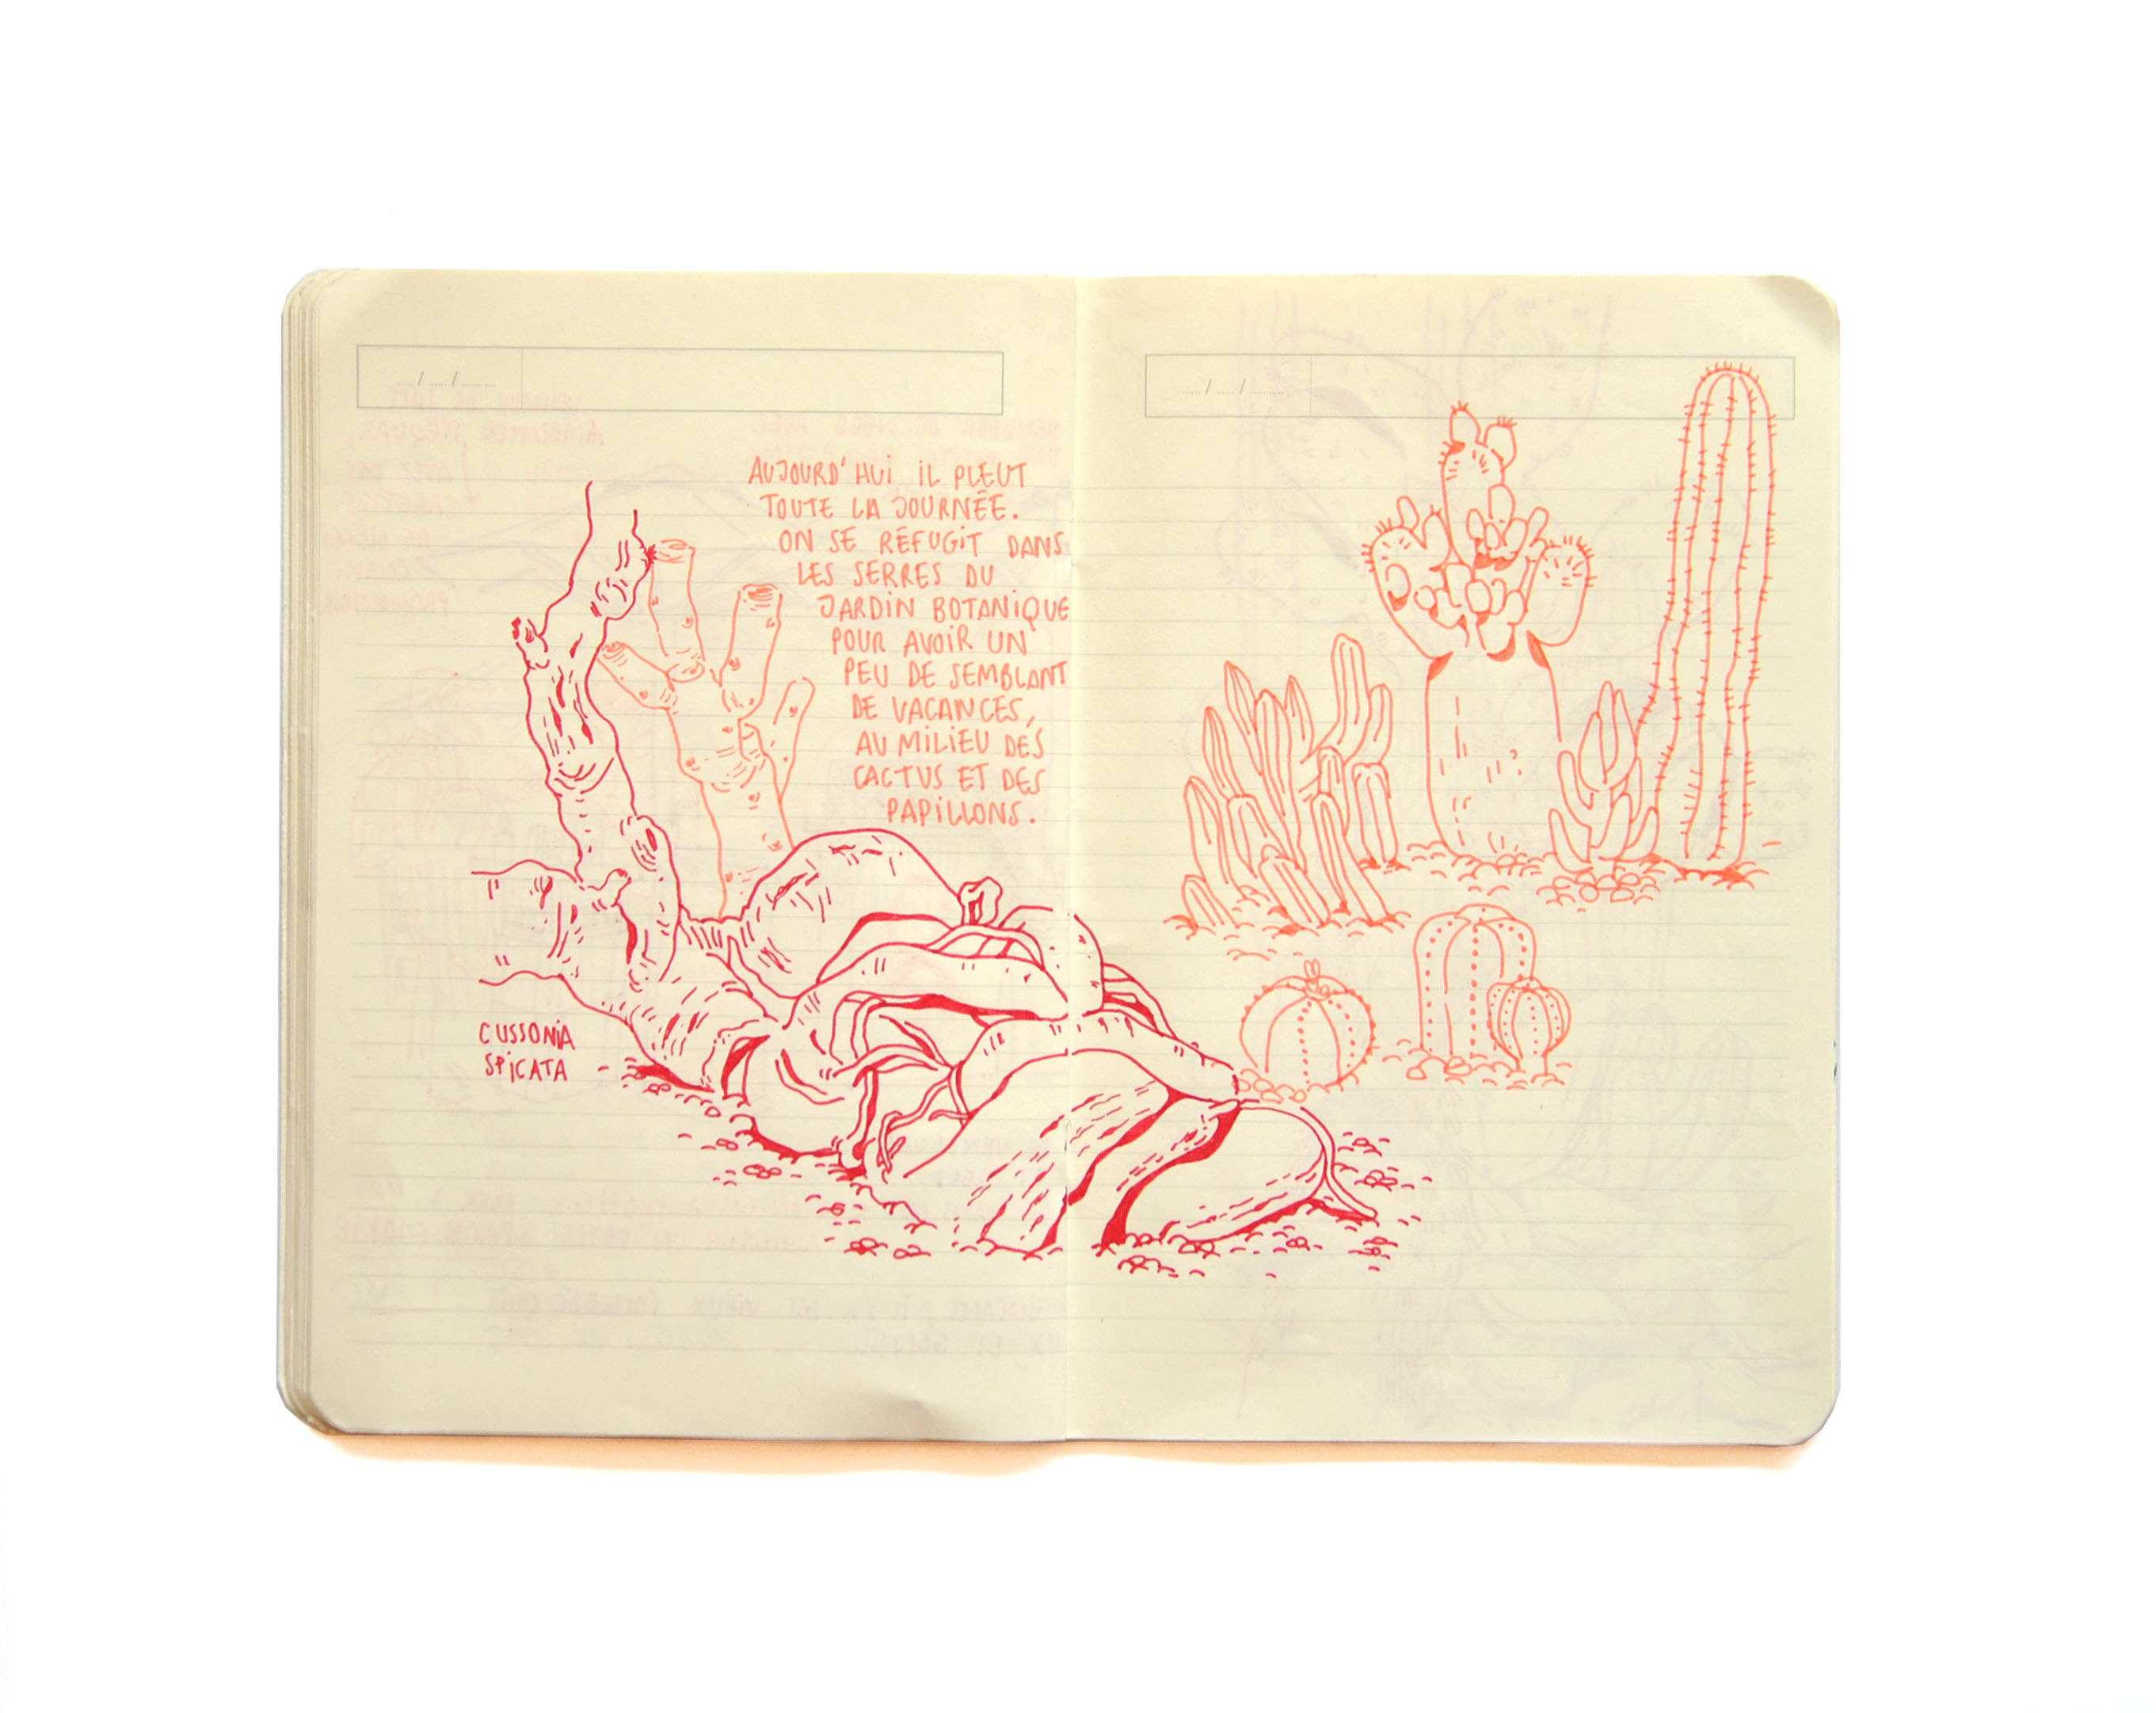 AUJOURD'HUI IL PLEUT
TOUTE LA JOURNÉE.
ON SE RÉFUGIT DANS
LES SERRES DU
JARDIN BOTANIQUE
POUR AVOIR UN
PEU DE SEMBLANT
DE VACANCES,
AU MILIEU DES
CACTUS ET DES
PAPILLONS.
CUSSONIA
SPICATA